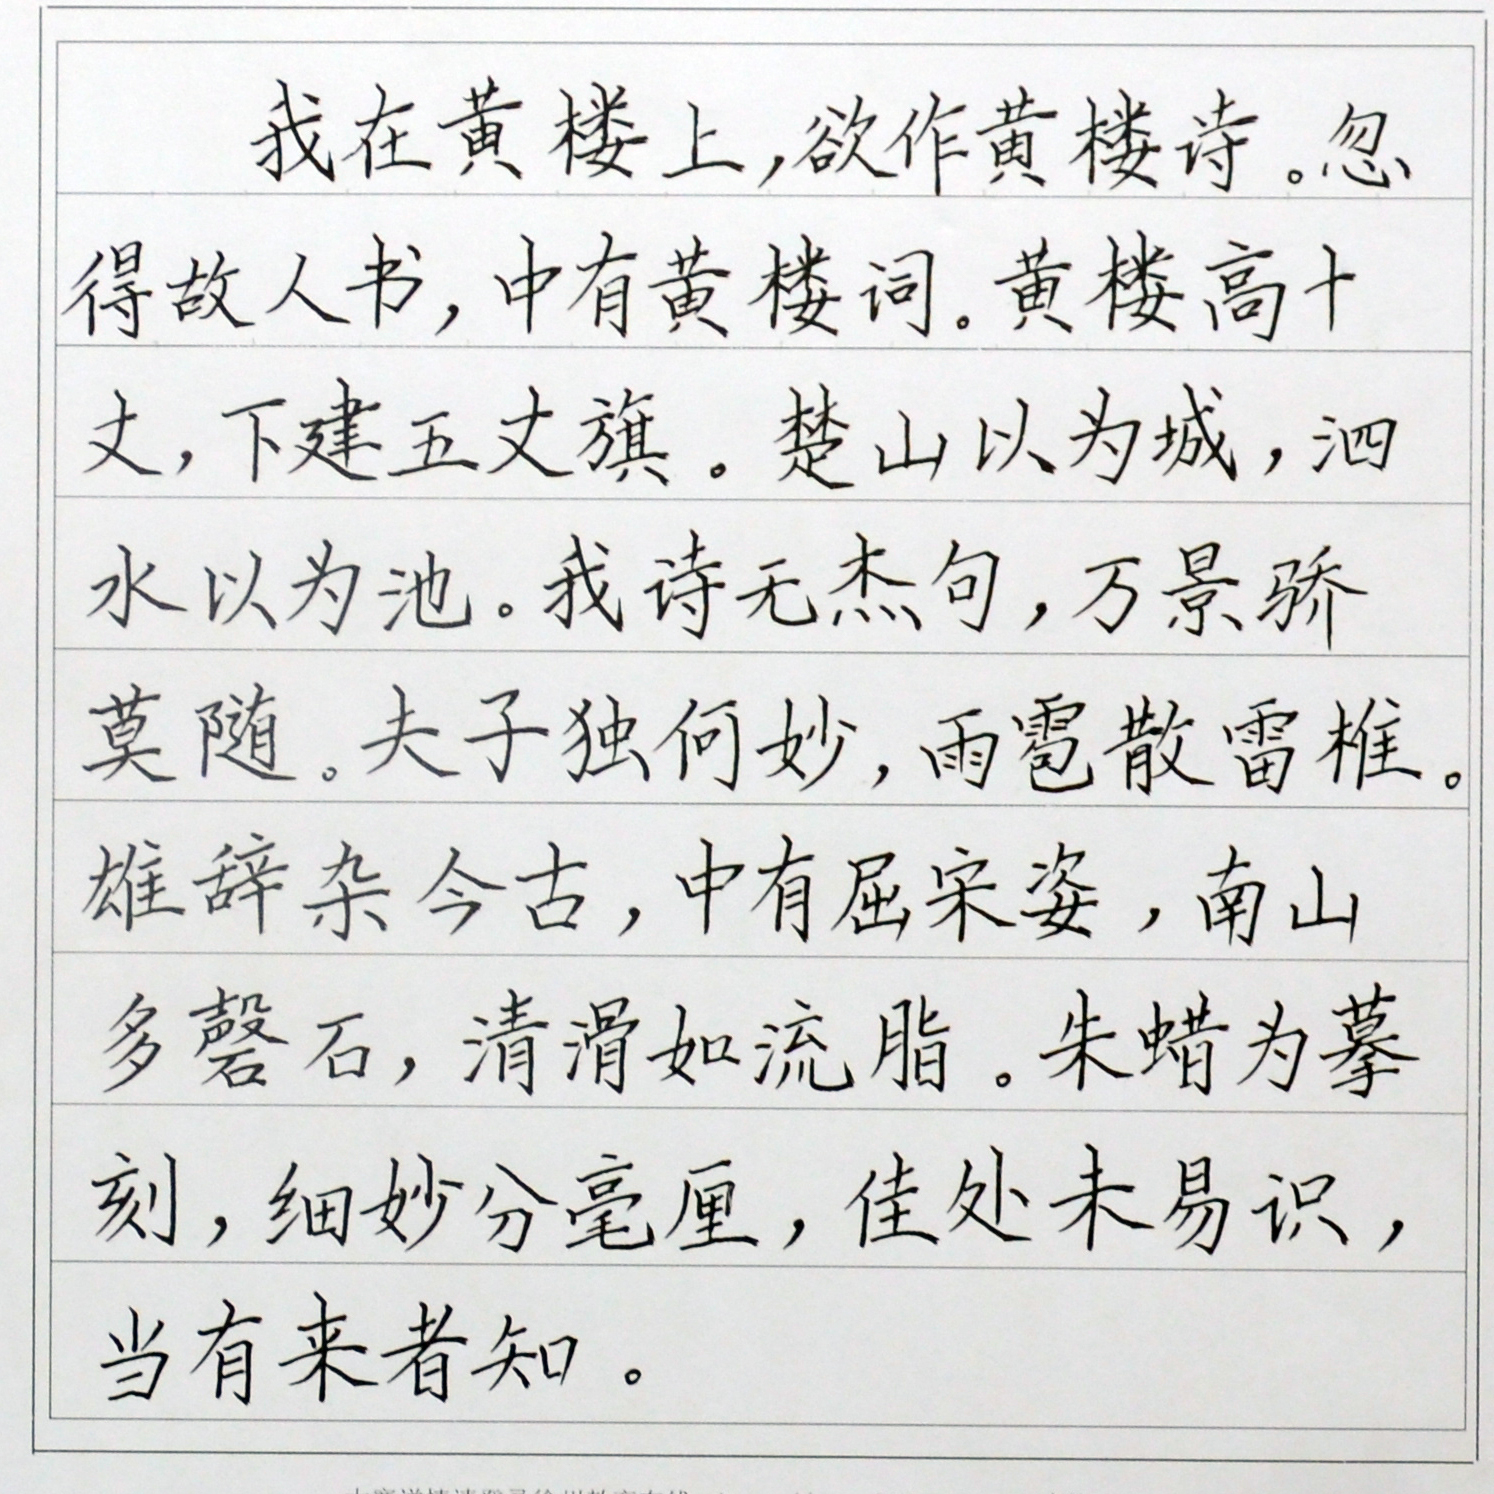 我在黄楼上,欲作黄楼诗。忽
得故人书,中有黄楼词。黄楼高十
丈,下建五丈旗。楚山以为城,泗
水以为池。我诗无杰句,万景骄
莫随。夫子独何妙,雨雹散雷椎。
雄辞杂今古,中有屈宋姿,南山
多磬石,清滑如流脂。朱蜡为摹
刻,细妙分毫厘,佳处未易识,
当有来者知。